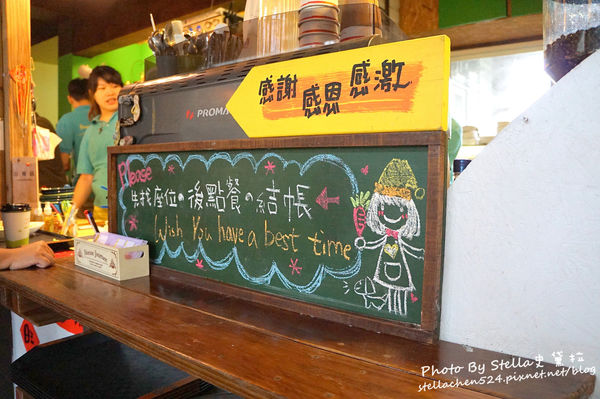 感謝 感恩 感激
PROMA
Please
先找座位の後點餐の結帳
Wish You have a best time
Photo By Stella史黛拉
stellachen524.pixnet.net/blog